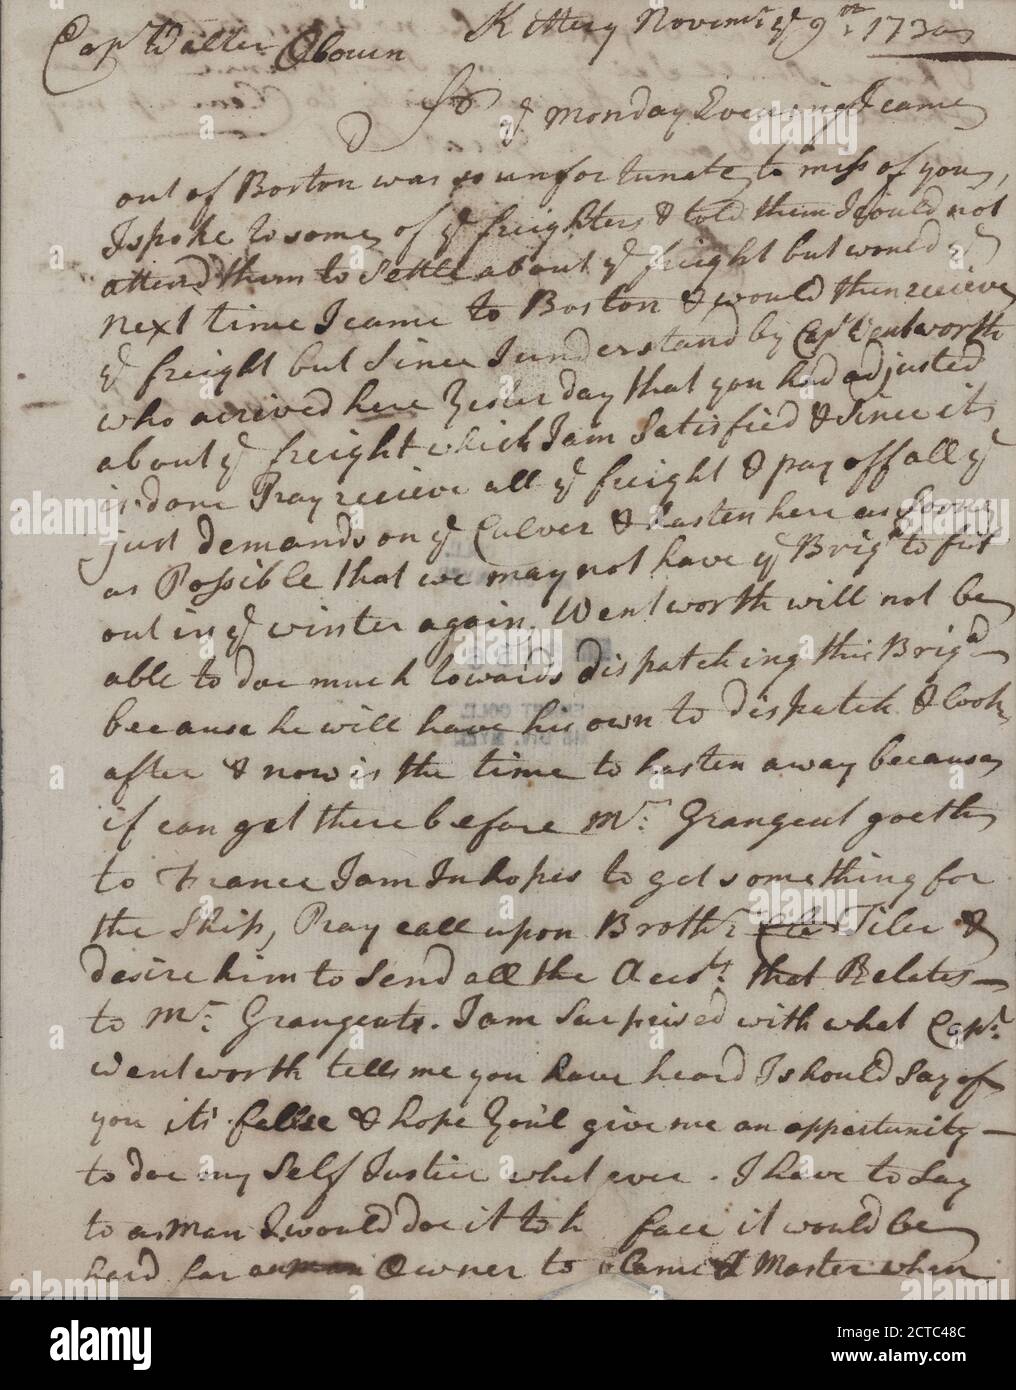 Kittery Novemr ye 9th 173
Capt Walter Osborn
Sr ye monday Evening I came
out of Boston was so unfortunate to miss of you,
I spoke to some of ye freighters & told them I could not
attend them to Settle about ye freight but would ye
next time I came to Boston & would then recieve
ye freight but Since I understand by Capt Wentworth
who arrived here Yesterday that you had adjusted
about ye freight which I am Satisfied & Since it
is done Pray recieve all ye freight & pay off all ye
just demands on ye Culver & hasten here as Soone
as Possible that we may not have ye Brigr to fit
out in ye winter again, Wentworth will not be
able to doe much towards dispatching this Brigd
because he will have his own to dispatch & look
after & now is the time to hasten away because
if can get there before Mr. Grangent goeth
to France I am In hopes to get something for
the Ship, Pray call upon Brothr Tiler &
desire him to Send all the Acots. that Relates
to Mr. Grangents. I am Surprised with what Capt.
Wentworth tells me you have heard I should Say of
you its false & hope You'l give me an oppertunity
to doe my Self Justice what ever. I have to Say
to a Man I would doe it to h face it would be
hard for Owner to blame a Master when
alamy
Image ID: 2CTC48C
www.alamy.com